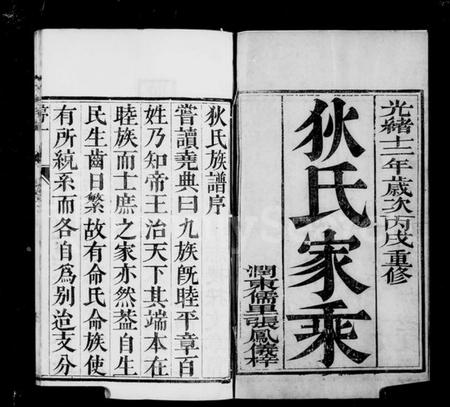 光緒十二年歲次丙戌重修
狄氏家乘
潤東儒里張鳳儀梓
狄氏族譜序
嘗讀堯典曰九族旣睦平章百
姓乃知帝王治天下其端本在
睦族而士庶之家亦然葢自生
民生齒日繁故有命氏命族使
有所統系而各自爲別迨支分
序一